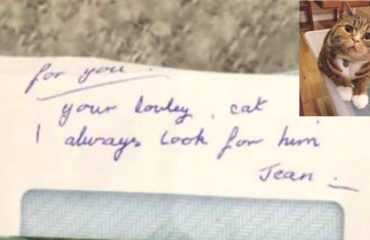 for you.
your lovley, cat
I always look for him
Jean